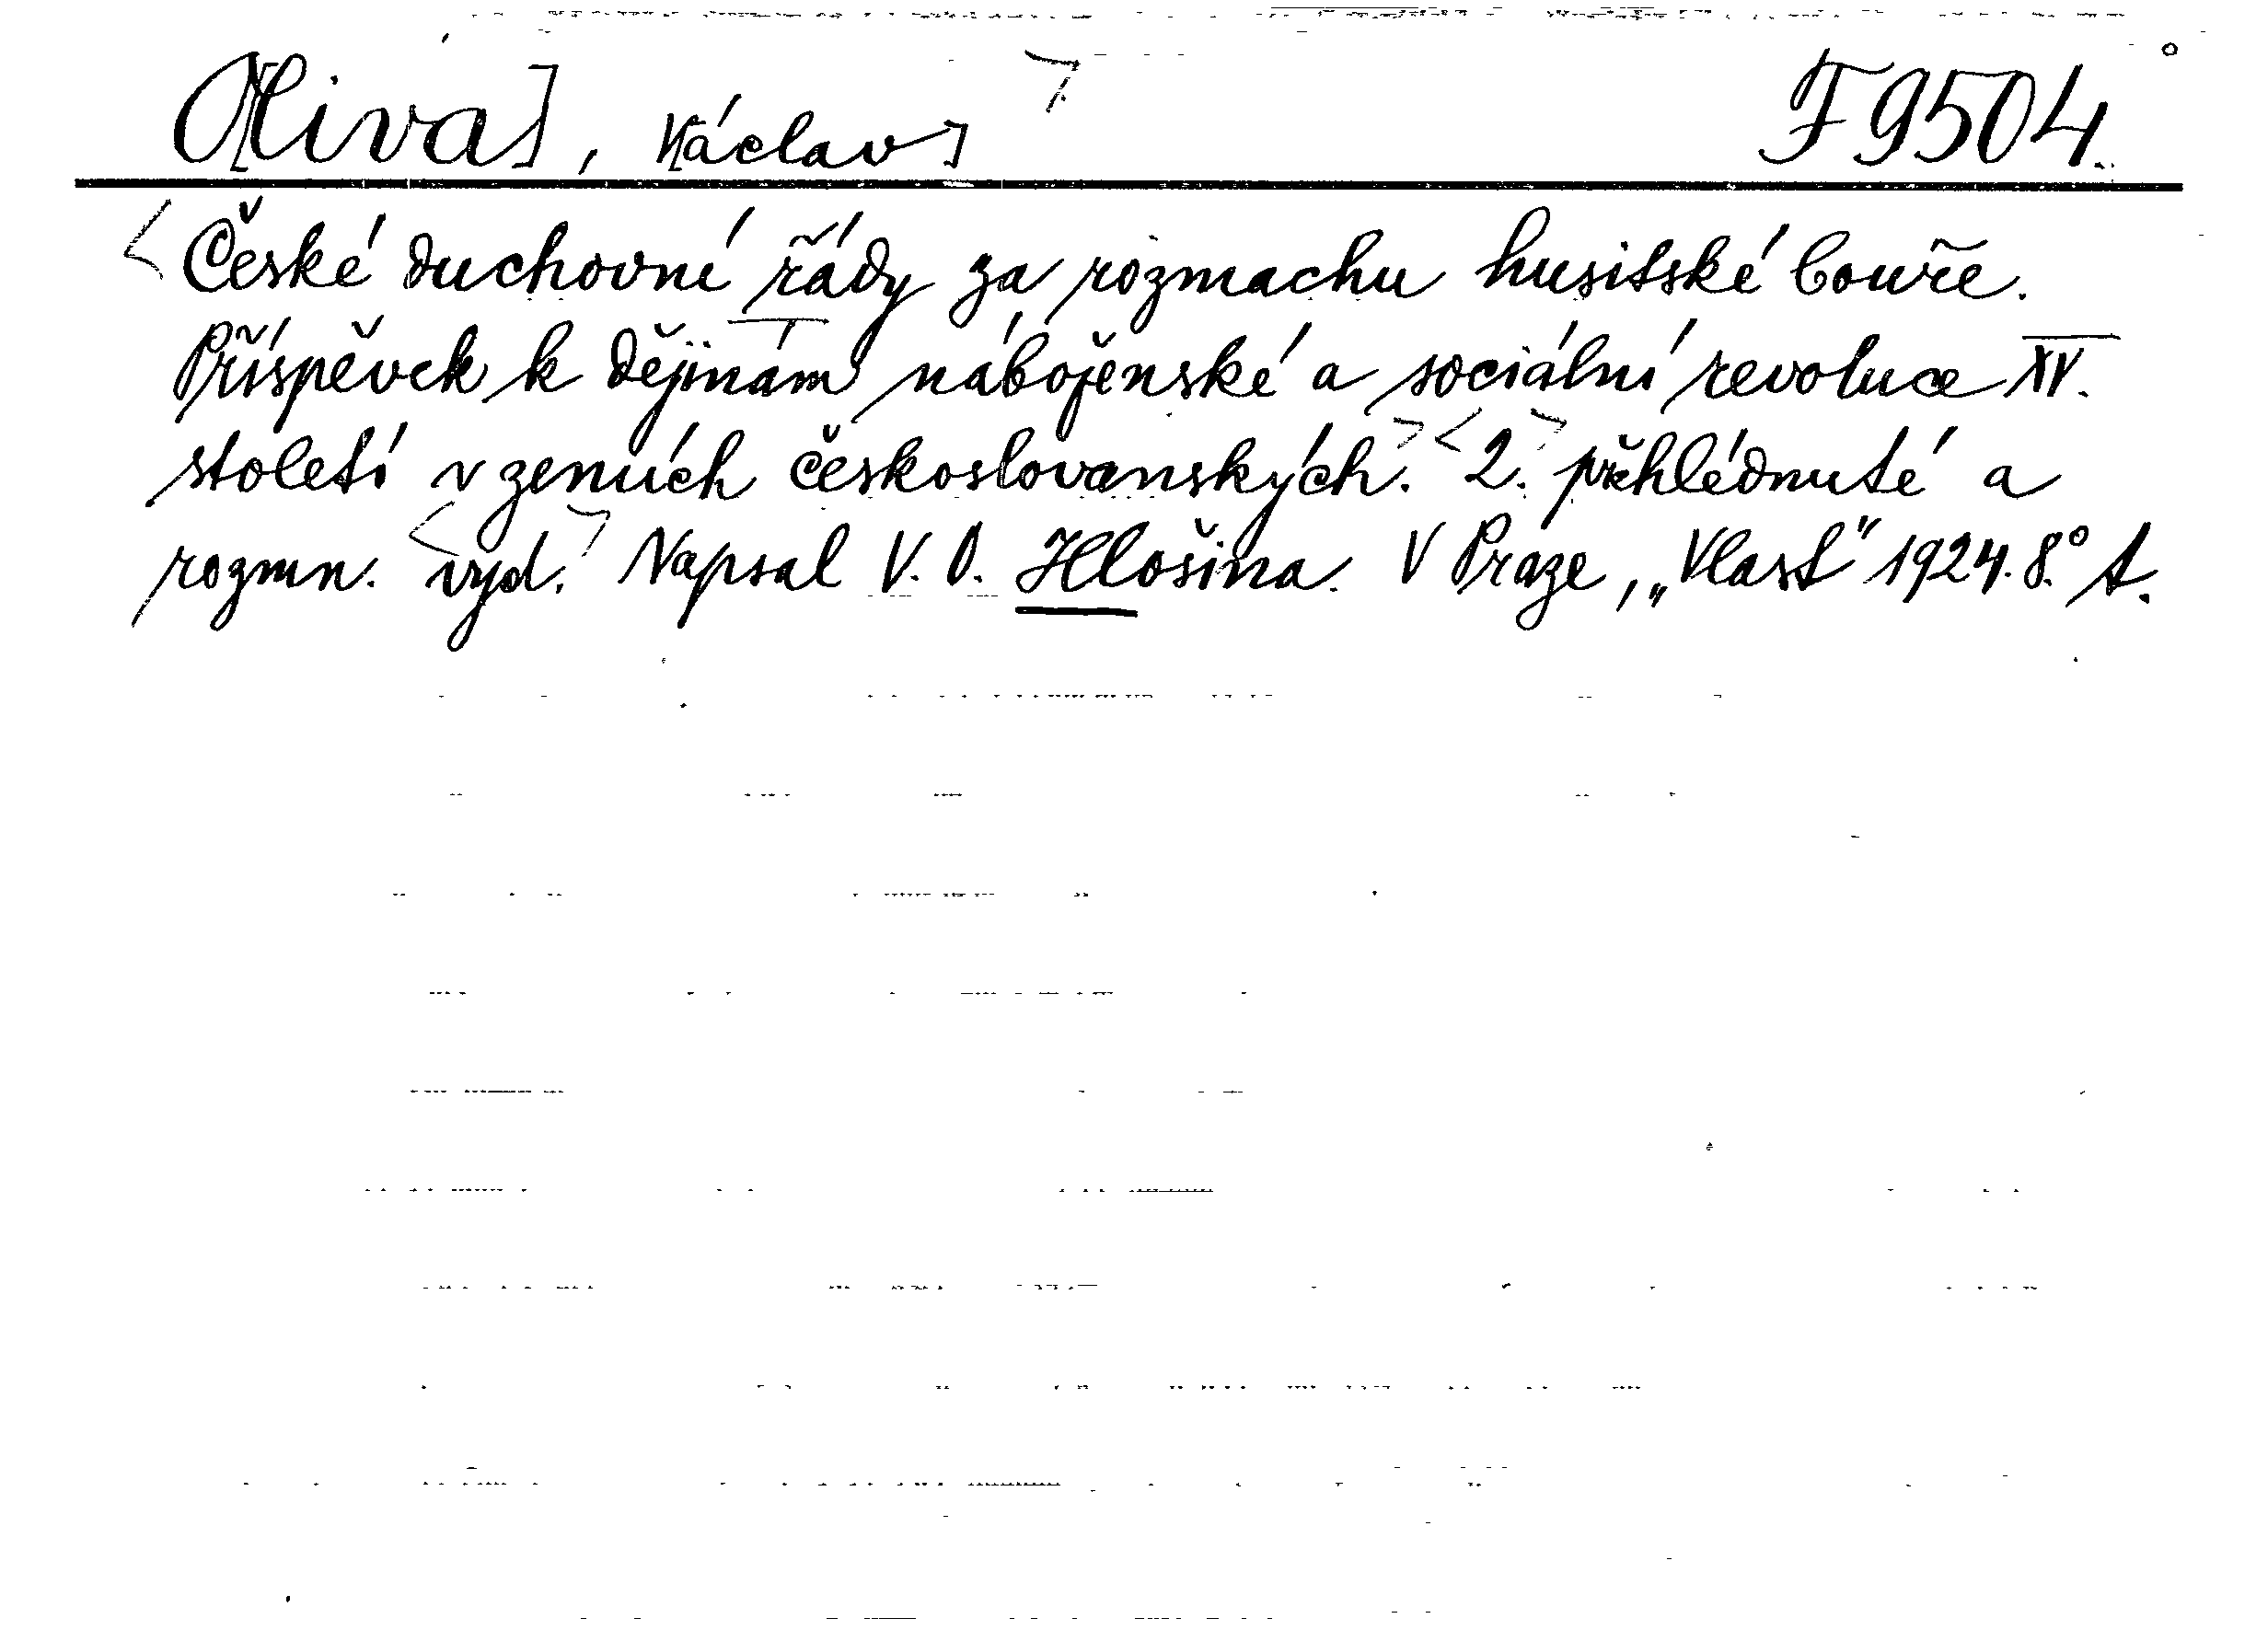 O[liva], V[áclav] F 9504.
České duchovní řády za rozmachu husitské bouře.
Příspěvek k dějinám náboženské a sociální revoluce XV.
století v zemích českoslovanských. 2. přehlédnuté a
rozmn. vyd. Napsal V. O. Hlošina. V Praze, „Vlast" 1924. 8.° A.